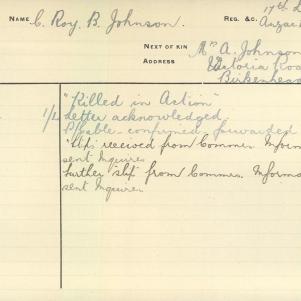 17th L
NAME C. Roy. B. Johnson. REG. &C. Anzac
NEXT OF KIN Mrs A. Johnson
ADDRESS Victoria Roa
Birkenhead
"Killed in Action"
1/L Letter acknowledged
confirmed forwarded
"Slip" received from Common. Inform
sent Inquirer
Further slip from Common. Informa
sent Inquirer